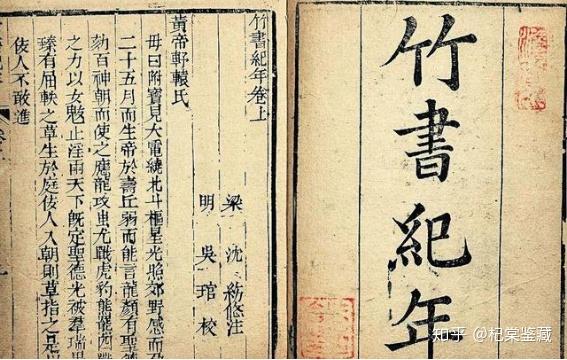 竹書紀年
竹書紀年卷上
梁 沈約注
明 吳琯校
黃帝軒轅氏
母曰附寶見大電繞北斗樞星光照郊野感而孕
二十五月而生帝於壽丘弱而能言龍顏有聖德
劾百神朝而使之應龍攻蚩尤戰虎豹熊羆四
之力以女魃止淫雨天下既定聖德光被羣瑞畢
臻有屈軼之草生於庭佞人入朝則草指之是
佞人不敢進
知乎 @杞棠鉴藏